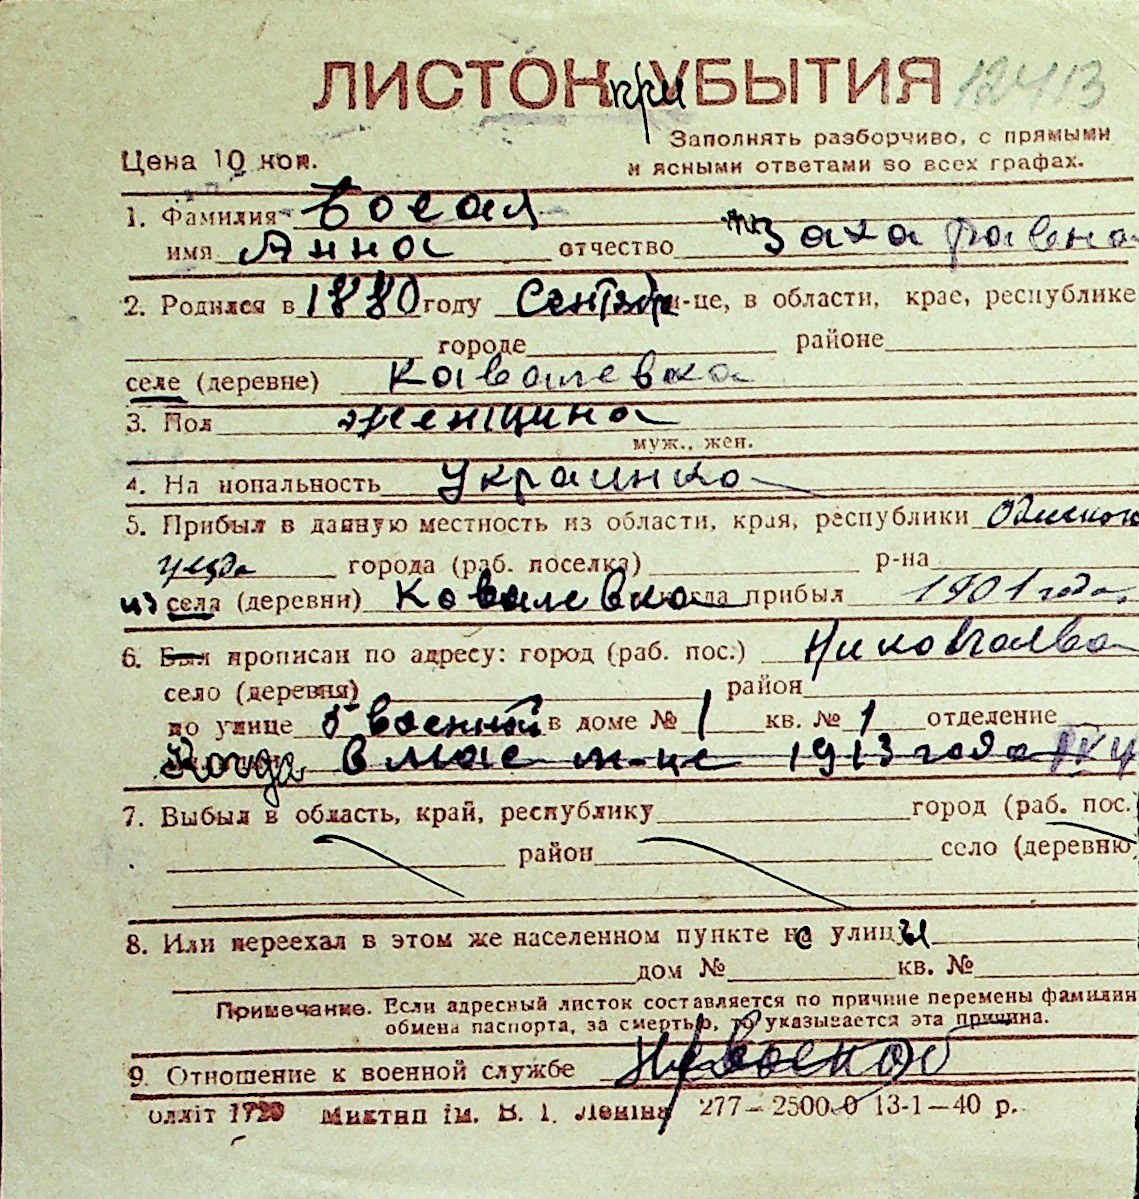 ЛИСТОК при УБЫТИЯ 12413
Заполнять разборчиво, с прямыми
Цена 10 коп. и ясными ответами во всех графах.
1. Фамилия Босая
имя Анна отчество Захаровна
2. Родился в 1880 году Сентябр м-це, в области, крае, республике
городе районе
селе (деревне) Каваливка
3. Пол женщина
муж., жен.
4. На иональность украинка
5. Прибыл в данную местность из области, края, республики
уезда города (раб. поселка) р-на
из села (деревни) Ковалевка когда прибыл 1901 года,
6. Был прописан по адресу: город (раб. пос.)
село (деревня) район
по улице 5 военной в доме № 1 кв. № 1 отделение
Когда в мае м-це 1913 года
7. Выбыл в область, край, республику город (раб. пос.
район село (деревню
8. Или переехал в этом же населенном пункте с улицы
дом № кв. №
Примечание. Если адресный листок составляется по причине перемены фамилии
обмена паспорта, за смертью, то указывается эта причина.
9. Отношение к военной службе
блліт 1720 Миктип ім. В. І. Леніна 277—2500 0 13-1—40 р.